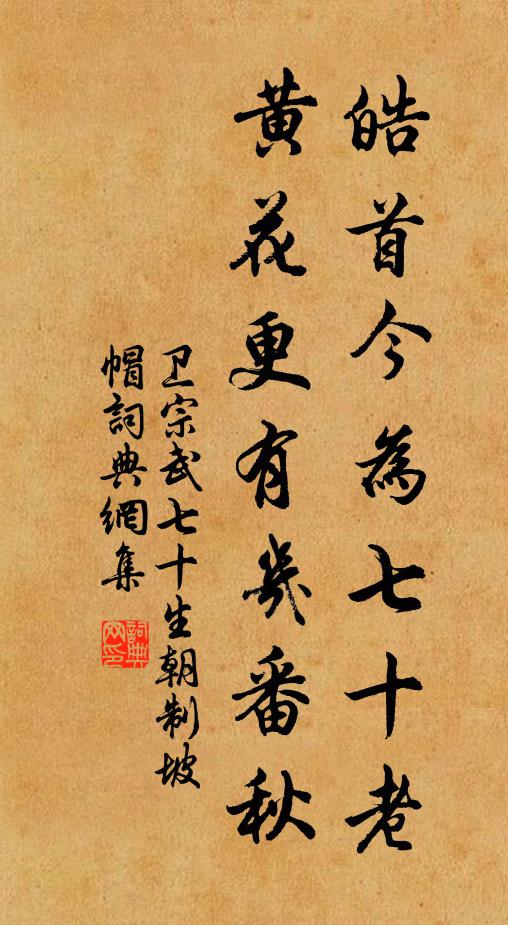 皓首今為七十老
黃花更有幾番秋
卫宗武七十生朝制坡
帽詞典網集
詞典
网印